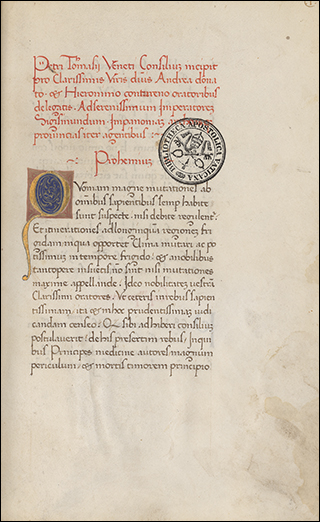 Petri Tomasii Veneti Consiliuz incipit
pro Clarissimis Viris diuis Andrea dona
to · et Hieronimo contareno oratoribus
delegatis. Ad serenissimum Imperatorez
Sigismundum. In
prouintias iter agentibus :
BIBLIOTHECA APOSTOLICA VATICANA
Prohemiuz
Quoniam magne mutationes ab
omnibus sapientibus semp habite
sunt suspecte nisi debite regulent
Et itinerationes ad longinquas regiones fri
gidam inqua oportet Uinia mutari ac po
tissimuz intempore frigido : et anobilibus
tantopere insuetis no sunt nisi mutationes
maxime appellande. Ideo nobilitatez vestra
Clarissimi oratores. Ve ceteris inrebus sapien
tissimam ita et inhoc prudentissimaz iudi
candam censeo: Q sibi adhiberi consiliuz
postulauerit : dehis presertim rebus: In qui
bus Principes medicine autores magnum
periculum : et mortis timorem principio